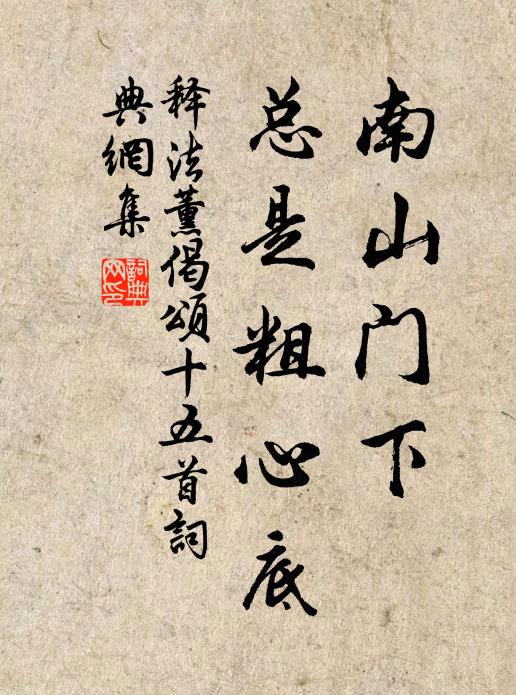 南山门下
总是粗心底
释法薰偈颂十五首詞
典網集
詞典
网印